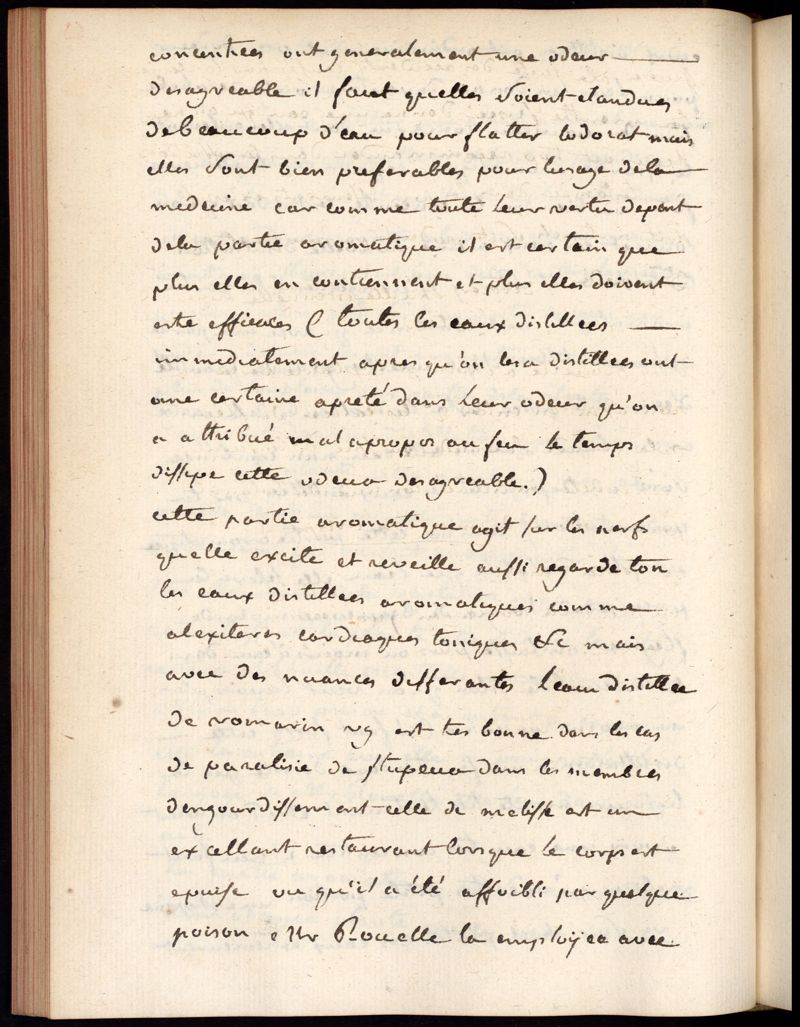 concentrees ont generalement une odeur
desagreable il faut quelles soient etandues
de beaucoup d'eau pour flatter lodorat mais
elles sont bien preferables pour lusage dela
medecine car comme toute leur vertu depent
dela partie aromatique il est certain que
plus elles en contiennent et plus elles doivent
estre efficaces ( toutes les eaux distillees
immediatement apres qu'on les a distillees ont
une certaine apreté dans leur odeur qu'on
a attribué mal apropos au feu le temps
dissipe cette odeur desagreable.)
cette partie aromatique agit sur les nerfs
quelle excite et reveille aussi regarde ton
les eaux distillees aromatiques comme
alexiteres cardiaques toniques &c mais
avec des nuances differantes leau distillee
de romarin vg est tres bonne dans les cas
de paralisie de stupeur dans les membres
dengourdissement celle de melisse est un
excellant restaurant lorsque le corps est
epuisé ou qu'il a été affoibli par quelque
poison Mr Rouelle la employéa avec